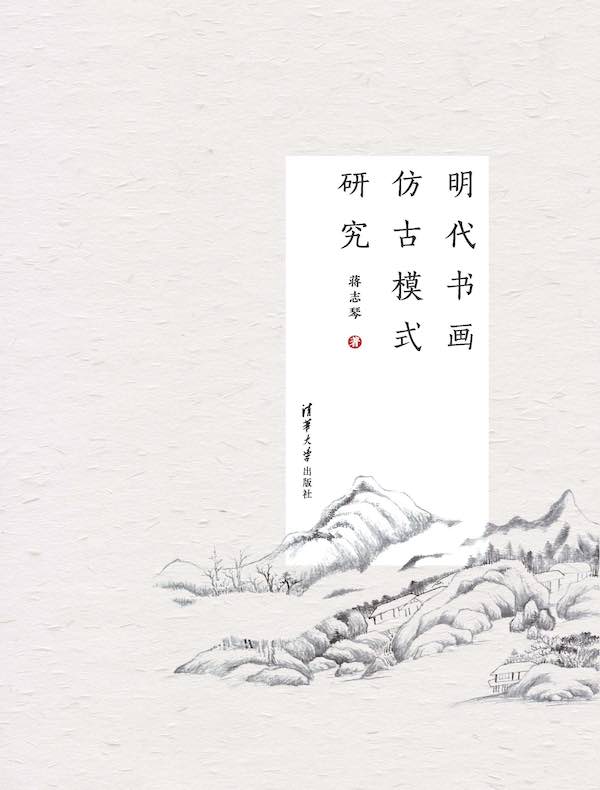 明代书画
仿古模式
研究
蒋志琴
著
清华大学出版社